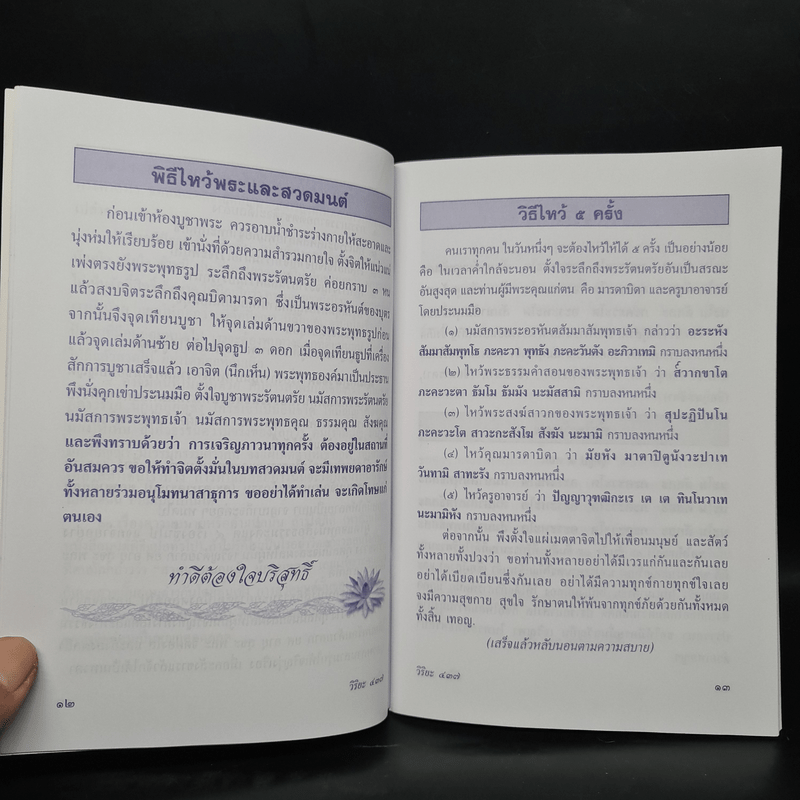 พิธีไหว้พระและสวดมนต์
ก่อนเข้าห้องบูชาพระ ควรอาบน้ำชำระร่างกายให้สะอาดและ
นุ่งห่มให้เรียบร้อย เข้านั่งที่ด้วยความสำรวมกายใจ ตั้งจิตให้แน่วแน่
เพ่งตรงยังพระพุทธรูป ระลึกถึงพระรัตนตรัย ค่อยกราบ ๓ หน
แล้วสงบจิตระลึกถึงคุณบิดามารดา ซึ่งเป็นพระอรหันต์ของบุตร
จากนั้นจึงจุดเทียนบูชา ให้จุดเล่มด้านขวาของพระพุทธรูปก่อน
แล้วจุดเล่มด้านซ้าย ต่อไปจุดธูป ๓ ดอก เมื่อจุดเทียนธูปที่เครื่อง
สักการบูชาเสร็จแล้ว เอาจิต (นึกเห็น) พระพุทธองค์มาเป็นประธาน
พึงนั่งคุกเข่าประนมมือ ตั้งใจบูชาพระรัตนตรัย นมัสการพระรัตนตรัย
นมัสการพระพุทธเจ้า นมัสการพระพุทธคุณ ธรรมคุณ สังฆคุณ
และพึงทราบด้วยว่า การเจริญภาวนาทุกครั้ง ต้องอยู่ในสถานที่
อันสมควร ขอให้ทำจิตตั้งมั่นในบทสวดมนต์ จะมีเทพยดาอารักษ์
ทั้งหลายร่วมอนุโมทนาสาธุการ ขออย่าได้ทำเล่น จะเกิดโทษแก่
ตนเอง
ทำดีต้องใจบริสุทธิ์
วิริยะ ๔๓๗
๑๒
วิธีไหว้ ๕ ครั้ง
คนเราทุกคน ในวันหนึ่งๆ จะต้องไหว้ให้ได้ ๕ ครั้ง เป็นอย่างน้อย
คือ ในเวลาค่ำใกล้จะนอน ตั้งใจระลึกถึงพระรัตนตรัยอันเป็นสรณะ
อันสูงสุด และท่านผู้มีพระคุณแก่ตน คือ มารดาบิดา และครูบาอาจารย์
โดยประนมมือ
(๑) นมัสการพระอรหันตสัมมาสัมพุทธเจ้า กล่าวว่า อะระหัง
สัมมาสัมพุทโธ ภะคะวา พุทธัง ภะคะวันตัง อะภิวาเทมิ กราบลงหนหนึ่ง
(๒) ไหว้พระธรรมคำสอนของพระพุทธเจ้า ว่า ส๎วากขาโต
ภะคะวะตา ธัมโม ธัมมัง นะมัสสามิ กราบลงหนหนึ่ง
(๓) ไหว้พระสงฆ์สาวกของพระพุทธเจ้า ว่า สุปะฏิปันโน
ภะคะวะโต สาวะกะสังโฆ สังฆัง นะมามิ กราบลงหนหนึ่ง
(๔) ไหว้คุณมารดาบิดา ว่า มัยหัง มาตาปิตูนังวะปาเท
วันทามิ สาทะรัง กราบลงหนหนึ่ง
(๕) ไหว้ครูอาจารย์ ว่า ปัญญาวุฑฒิกะเร เต เต ทินโนวาเท
นะมามิหัง กราบลงหนหนึ่ง
ต่อจากนั้น พึงตั้งใจแผ่เมตตาจิตไปให้เพื่อนมนุษย์ และสัตว์
ทั้งหลายทั้งปวงว่า ขอท่านทั้งหลายอย่าได้มีเวรแก่กันและกันเลย
อย่าได้เบียดเบียนซึ่งกันเลย อย่าได้มีความทุกข์กายทุกข์ใจเลย
จงมีความสุขกาย สุขใจ รักษาตนให้พ้นจากทุกข์ภัยด้วยกันทั้งหมด
ทั้งสิ้น เทอญ.
(เสร็จแล้วหลับนอนตามความสบาย)
วิริยะ ๔๓๗
๑๓